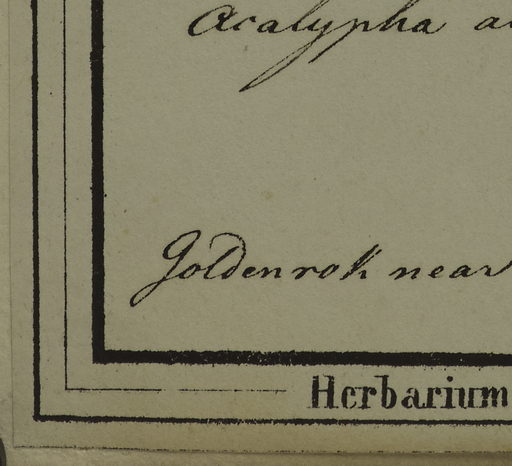 Acalypha
Goldenrok near
Herbarium